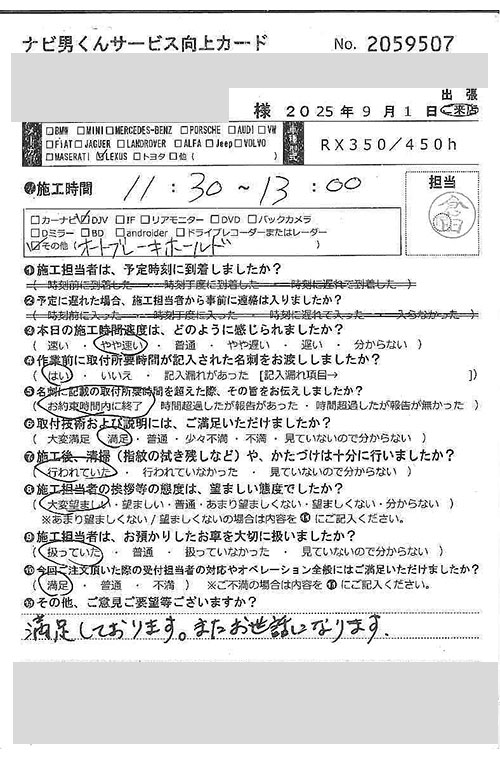 ナビ男くんサービス向上カード No. 2059507
様 2025年9月1日 出張 ご来店
□BMW □MINI □MERCEDES-BENZ □PORSCHE □AUDI □VW
□FIAT □JAGUER □LANDROVER □ALFA □Jeep □VOLVO
□MASERATI ☑LEXUS □トヨタ □他( )
RX350/450h
施工時間 11:30~13:00
担当
□カーナビ ☑DJV □IF □リアモニター □DVD □バックカメラ
□Dミラー □BD □androider □ドライブレコーダーまたはレーダー
☑その他(オートブレーキホールド
❶施工担当者は、予定時刻に到着しましたか?
(時刻前に到着した・時刻丁度に到着した・時刻に遅れて到着した)
❷予定に遅れた場合、施工担当者から事前に連絡は入りましたか?
(時刻前に入った・時刻丁度に入った・時刻に遅れて入った・入らなかった)
❸本日の施工時間速度は、どのように感じられましたか?
(速い・やや速い・普通・やや遅い・遅い・分からない)
❹作業前に取付所要時間が記入された名刺をお渡ししましたか?
(はい・いいえ・記入漏れがあった [記入漏れ項目→ ])
❺名刺に記載の取付所要時間を超えた際、その旨をお伝えしましたか?
(お約束時間内に終了・時間超過したが報告があった・時間超過したが報告が無かった)
❻取付技術および説明には、ご満足いただけましたか?
(大変満足・満足・普通・少々不満・不満・見ていないので分からない)
❼施工後、清掃(指紋の拭き残しなど)や、かたづけは十分に行いましたか?
(行われていた・行われていなかった・見ていないので分からない)
❽施工担当者の挨拶等の態度は、望ましい態度でしたか?
(大変望ましい・望ましい・普通・あまり望ましくない・望ましくない・分からない)
※あまり望ましくない/望ましくないの場合は内容を⑪にご記入ください。
❾施工担当者は、お預かりしたお車を大切に扱いましたか?
(扱っていた・普通・扱っていなかった・見ていないので分からない)
❿今回ご注文頂いた際の受付担当者の対応やオペレーション全般にはご満足いただけましたか?
(満足・普通・不満) ※ご不満の場合は内容を⑪にご記入ください。
⑪その他、ご意見ご要望等ございますか?
満足しております。またお世話になります.